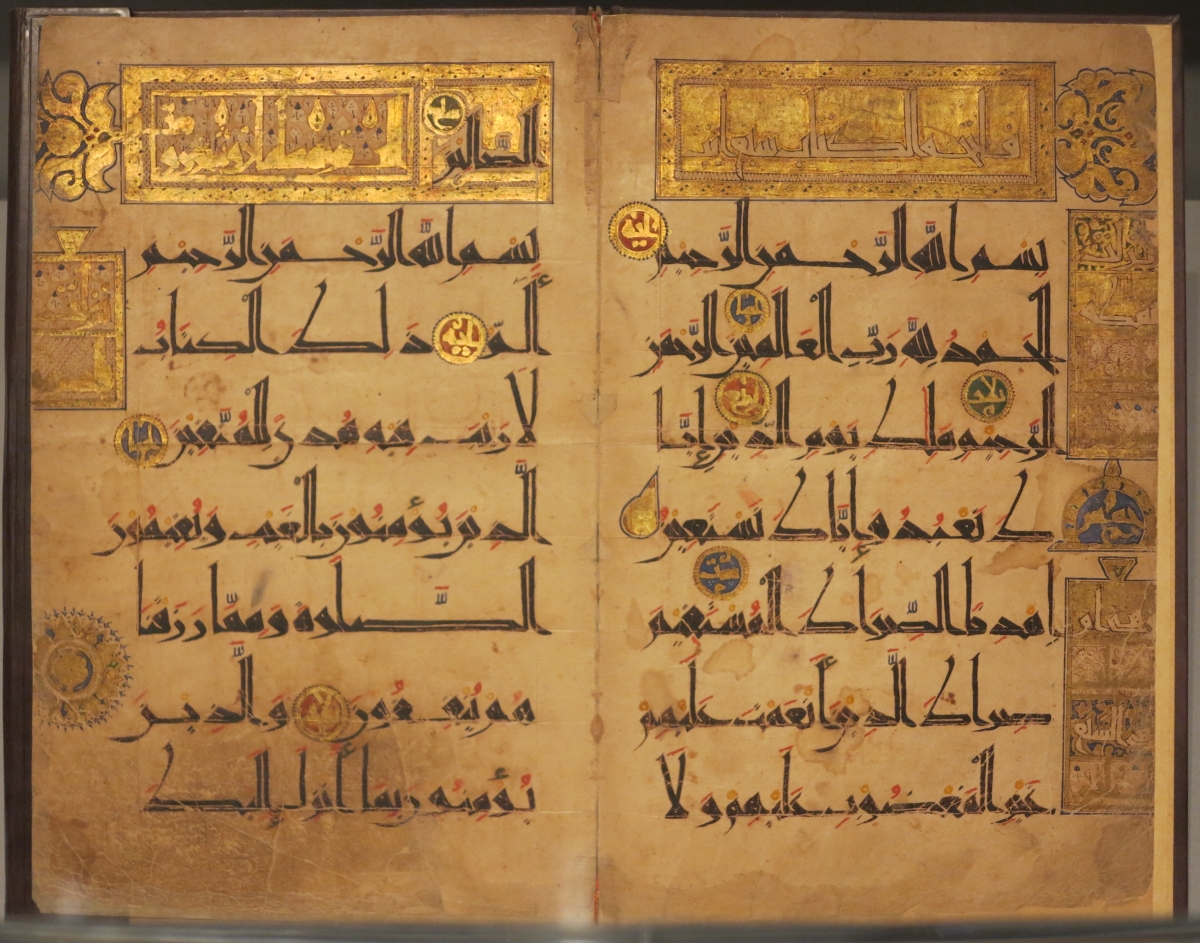 فاتحة الكتاب سبع آيات
بِسْمِ اللَّهِ الرَّحْمَنِ الرَّحِيمِ
الْحَمْدُ لِلَّهِ رَبِّ الْعَالَمِينَ الرَّحْمَنِ
الرَّحِيمِ مَلِكِ يَوْمِ الدِّينِ إِيَّا
كَ نَعْبُدُ وَإِيَّاكَ نَسْتَعِينُ
اهْدِنَا الصِّرَاطَ الْمُسْتَقِيمَ
صِرَاطَ الَّذِينَ أَنْعَمْتَ عَلَيْهِمْ
غَيْرِ الْمَغْضُوبِ عَلَيْهِمْ وَلَا
الضَّالِّينَ
بِسْمِ اللَّهِ الرَّحْمَنِ الرَّحِيمِ
ألم ذَلِكَ الْكِتَابُ
لَا رَيْبَ فِيهِ هُدًى لِلْمُتَّقِينَ
الَّذِينَ يُؤْمِنُونَ بِالْغَيْبِ وَيُقِيمُونَ
الصَّلَوةَ وَمِمَّا رَزَقْنَا
هُمْ يُنْفِقُونَ وَالَّذِينَ
يُؤْمِنُونَ بِمَا أُنْزِلَ إِلَيْكَ